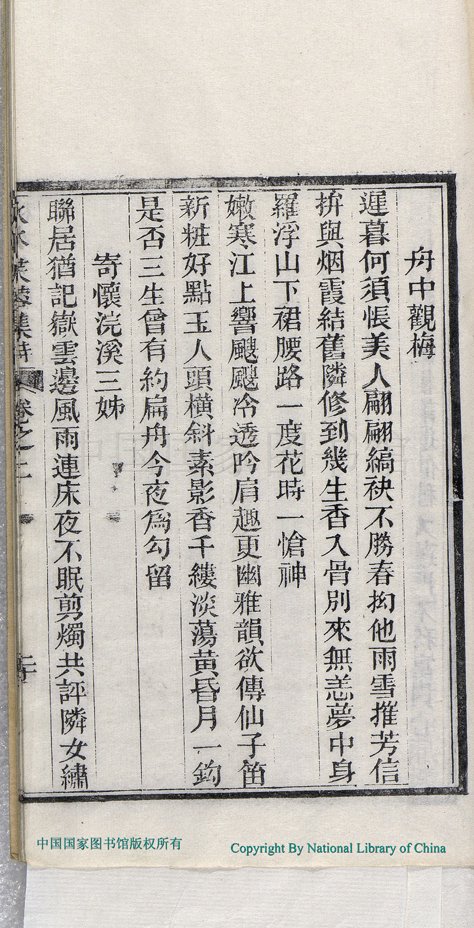 舟中觀梅
遲暮何須悵美人翩翩縞袂不勝春拗他雨雪摧芳信
拚與烟霞結舊隣修到幾生香入骨別來無恙夢中身
羅浮山下裙腰路一度花時一愴神
嫩寒江上響颼颼冷透吟肩趣更幽雅韻欲傳仙子笛
新粧好點玉人頭橫斜素影香千縷淡蕩黃昏月一鈎
是否三生曾有約扁舟今夜爲勾留
寄懷浣溪三姊
聯居猶記嶽雲邊風雨連床夜不眠剪燭共評隣女繡
芙蓉集詩 卷之二
二十
中国国家图书馆版权所有
Copyright By National Library of China